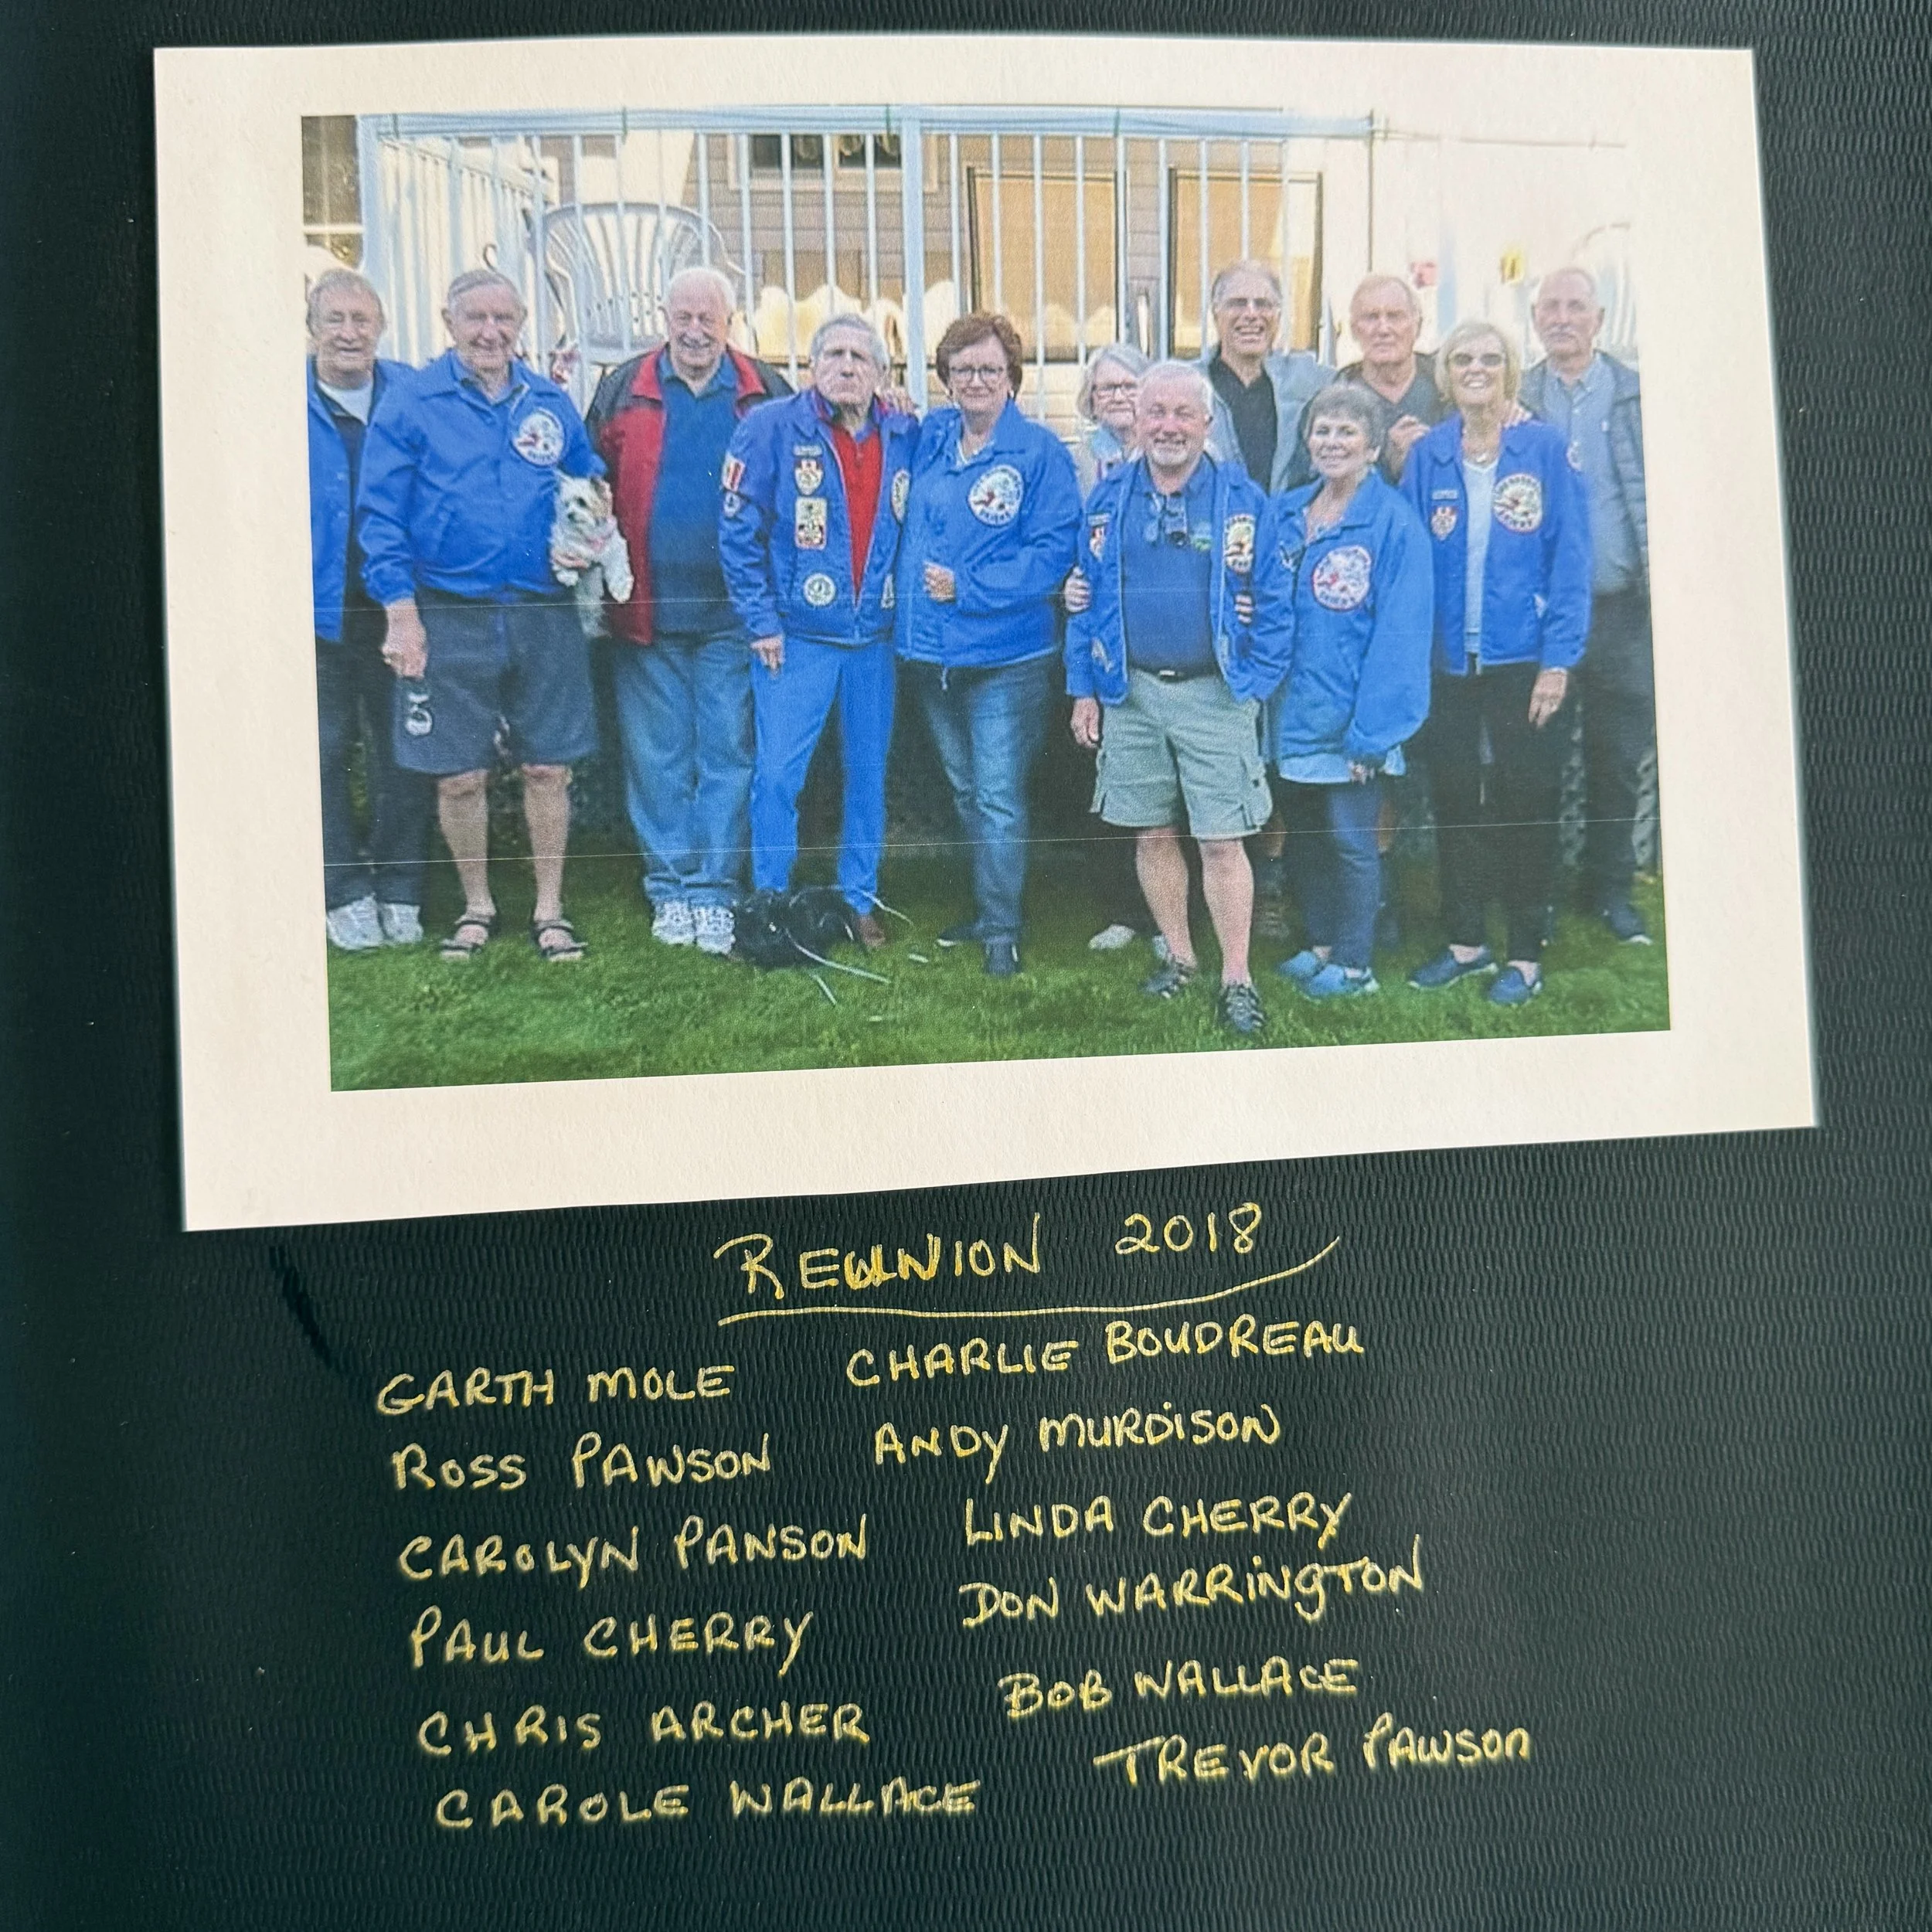 REUNION 2018
GARTH MOLE CHARLIE BOUDREAU
ROSS PAWSON ANDY MURDISON
CAROLYN PANSON LINDA CHERRY
PAUL CHERRY DON WARRINGTON
CHRIS ARCHER BOB WALLACE
CAROLE WALLACE TREVOR PAWSON